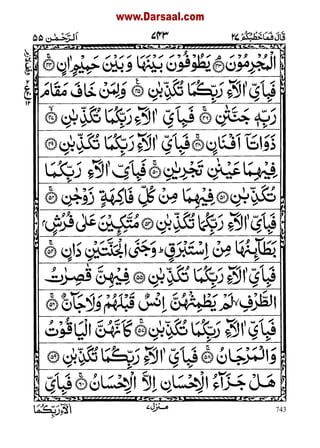 www.Darsaal.com
قَالَ فَمَا خَطْبُكُمْ ٢٧
٧٤٣
اَلرَّحْمٰن ٥٥
الْمُجْرِمُوْنَ ۘ﴿٤٣﴾ يَطُوْفُوْنَ بَيْنَهَا وَبَيْنَ حَمِيْمٍ اٰنٍ ﴿٤٤﴾
فَبِاَيِّ اٰلَآءِ رَبِّكُمَا تُكَذِّبٰنِ ﴿٤٥﴾ وَلِمَنْ خَافَ مَقَامَ
رَبِّهٖ جَنَّتٰنِ ﴿٤٦﴾ فَبِاَيِّ اٰلَآءِ رَبِّكُمَا تُكَذِّبٰنِ ﴿٤٧﴾
ذَوَاتَاۤ اَفْنَانٍ ﴿٤٨﴾ فَبِاَيِّ اٰلَآءِ رَبِّكُمَا تُكَذِّبٰنِ ﴿٤٩﴾
فِيْهِمَا عَيْنٰنِ تَجْرِيٰنِ ﴿٥٠﴾ فَبِاَيِّ اٰلَآءِ رَبِّكُمَا
تُكَذِّبٰنِ ﴿٥١﴾ فِيْهِمَا مِنْ كُلِّ فَاكِهَةٍ زَوْجٰنِ ﴿٥٢﴾
فَبِاَيِّ اٰلَآءِ رَبِّكُمَا تُكَذِّبٰنِ ﴿٥٣﴾ مُتَّكِـِٕيْنَ عَلٰى فُرُشٍۭ
بَطَآئِنُهَا مِنْ اِسْتَبْرَقٍ ؕ وَجَنَا الْجَنَّتَيْنِ دَانٍ ﴿٥٤﴾
فَبِاَيِّ اٰلَآءِ رَبِّكُمَا تُكَذِّبٰنِ ﴿٥٥﴾ فِيْهِنَّ قٰصِرٰتُ
الطَّرْفِ ۙ لَمْ يَطْمِثْهُنَّ اِنْسٌ قَبْلَهُمْ وَلَا جَآنٌّ ﴿٥٦﴾
فَبِاَيِّ اٰلَآءِ رَبِّكُمَا تُكَذِّبٰنِ ﴿٥٧﴾ كَاَنَّهُنَّ الْيَاقُوْتُ
وَالْمَرْجَانُ ﴿٥٨﴾ فَبِاَيِّ اٰلَآءِ رَبِّكُمَا تُكَذِّبٰنِ ﴿٥٩﴾
هَلْ جَزَآءُ الْاِحْسَانِ اِلَّا الْاِحْسَانُ ﴿٦٠﴾ فَبِاَيِّ
اٰلَآءِ رَبِّكُمَا
منزل ٧
743